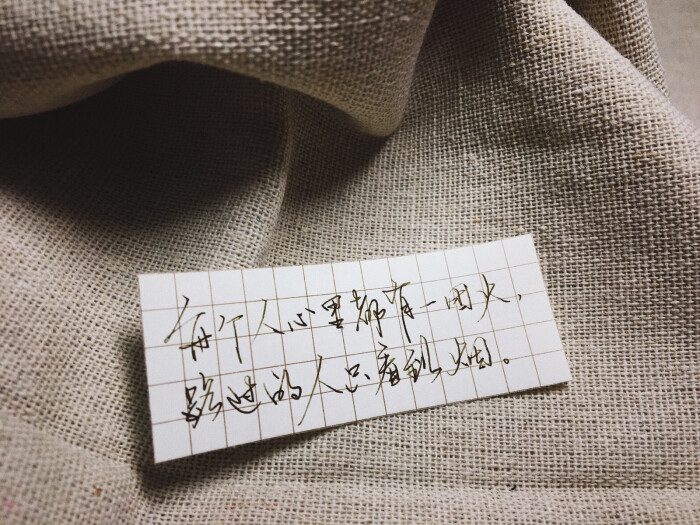 每个人心里都有一团火，
路过的人只看到烟。